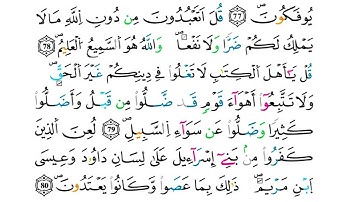 يُوفَكُونَ ۝٧٧ قُلَ اَتَعۡبُدُونَ مِن دُونِ اِ۬للَّهِ مَا لَا
يَمۡلِكُ لَكُمۡ ضَرّٗا وَلَا نَفۡعٗاۖ وَاللَّهُ هُوَ اَ۬لسَّمِيعُ اُ۬لۡعَلِيمُۖ ۝٧٨
قُلۡ يَٰٓأَهۡلَ اَ۬لۡكِتَٰبِ لَا تَغۡلُواْ فِي دِينِكُمۡ غَيۡرَ اَ۬لۡحَقِّۖ
وَلَا تَتَّبِعُوٓاْ أَهۡوَآءَ قَوۡمٖ قَد ضَّلُّواْ مِن قَبۡلُ وَأَضَلُّواْ
كَثِيرٗا وَضَلُّواْ عَن سَوَآءِ اِ۬لسَّبِيلِۖ ۝٧٩ لُعِنَ اَ۬لذِينَ
كَفَرُواْ مِنۢ بَنِيٓ إِسۡرَآءِيلَ عَلَىٰ لِسَانِ دَاوُۥدَ وَعِيسَى
اَ۪بۡنِ مَرۡيَمَۖ ذَٰلِكَ بِمَا عَصَواْ وَّكَانُواْ يَعۡتَدُونَۖ ۝٨٠